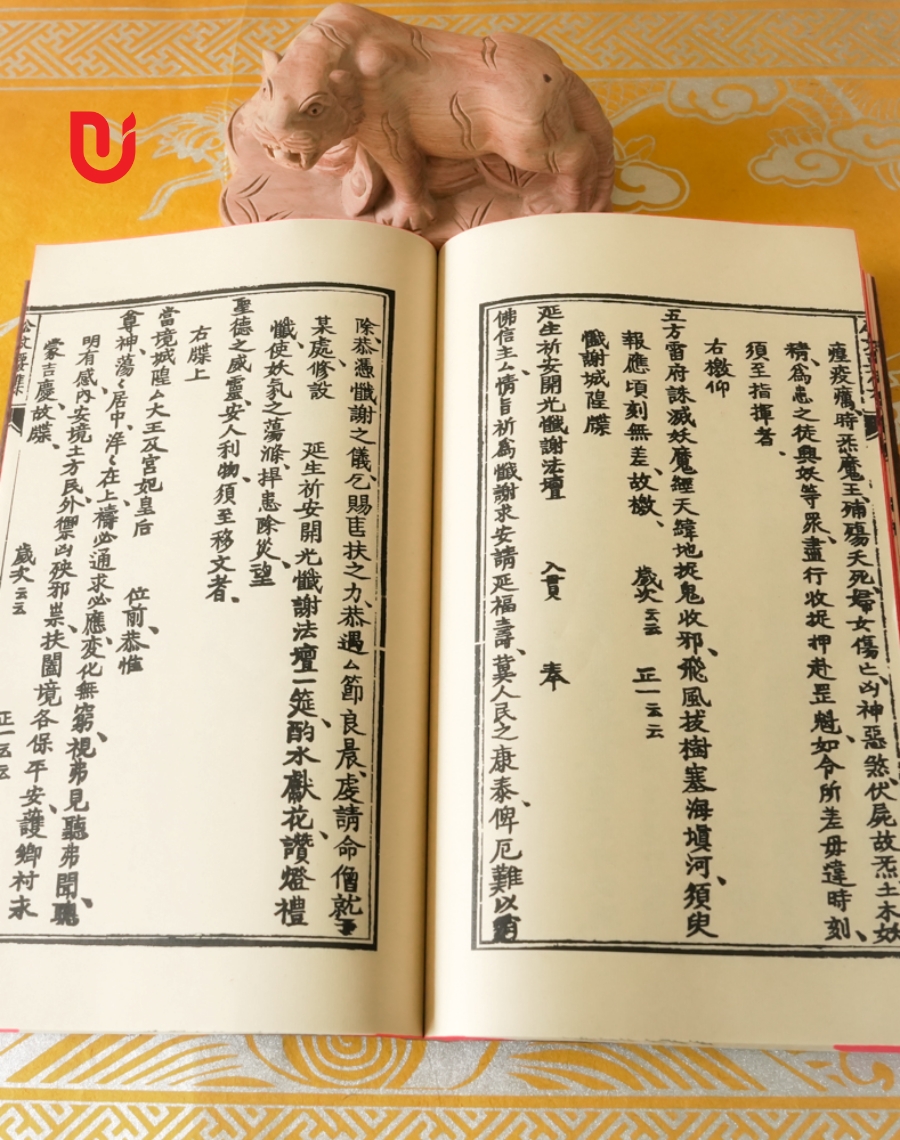 瘟疫癘時炁魔王殤夭死婦女傷亡凶神惡煞伏屍故炁土木妖
精為患之徒與妖等眾盡行收捉押赴罡魁如令所差毋違時刻
須至指揮者
右檄仰
五方雷府誅滅妖魔經天緯地捉鬼收邪飛風拔樹塞海塡河須臾
報應頃刻無差故檄 歲次云云 正一云云
懺謝城隍牒
延生祈安開光懺謝法壇 入貫 奉
佛信主厶情旨祈為懺謝求安請延福壽冀人民之康泰俾厄難以
除恭憑懺謝之儀乞賜匡扶之力恭遇厶節良晨虔請命僧就于
某處修設 延生祈安開光懺謝法壇一筵酌水獻花讚燈禮
懺使妖氛之蕩滌捍患除災望
聖德之威靈安人利物須至移文者
右牒上
當境城隍厶大王及宮妃皇后 位前恭惟
尊神蕩〻居中洋〻在上禱必通求必應変化無窮視弗見聽弗聞聰
明有感內安境土方民外禦凶殃邪祟扶闔境各保平安護鄉村永
蒙吉慶故牒 歲次云云 正一云云